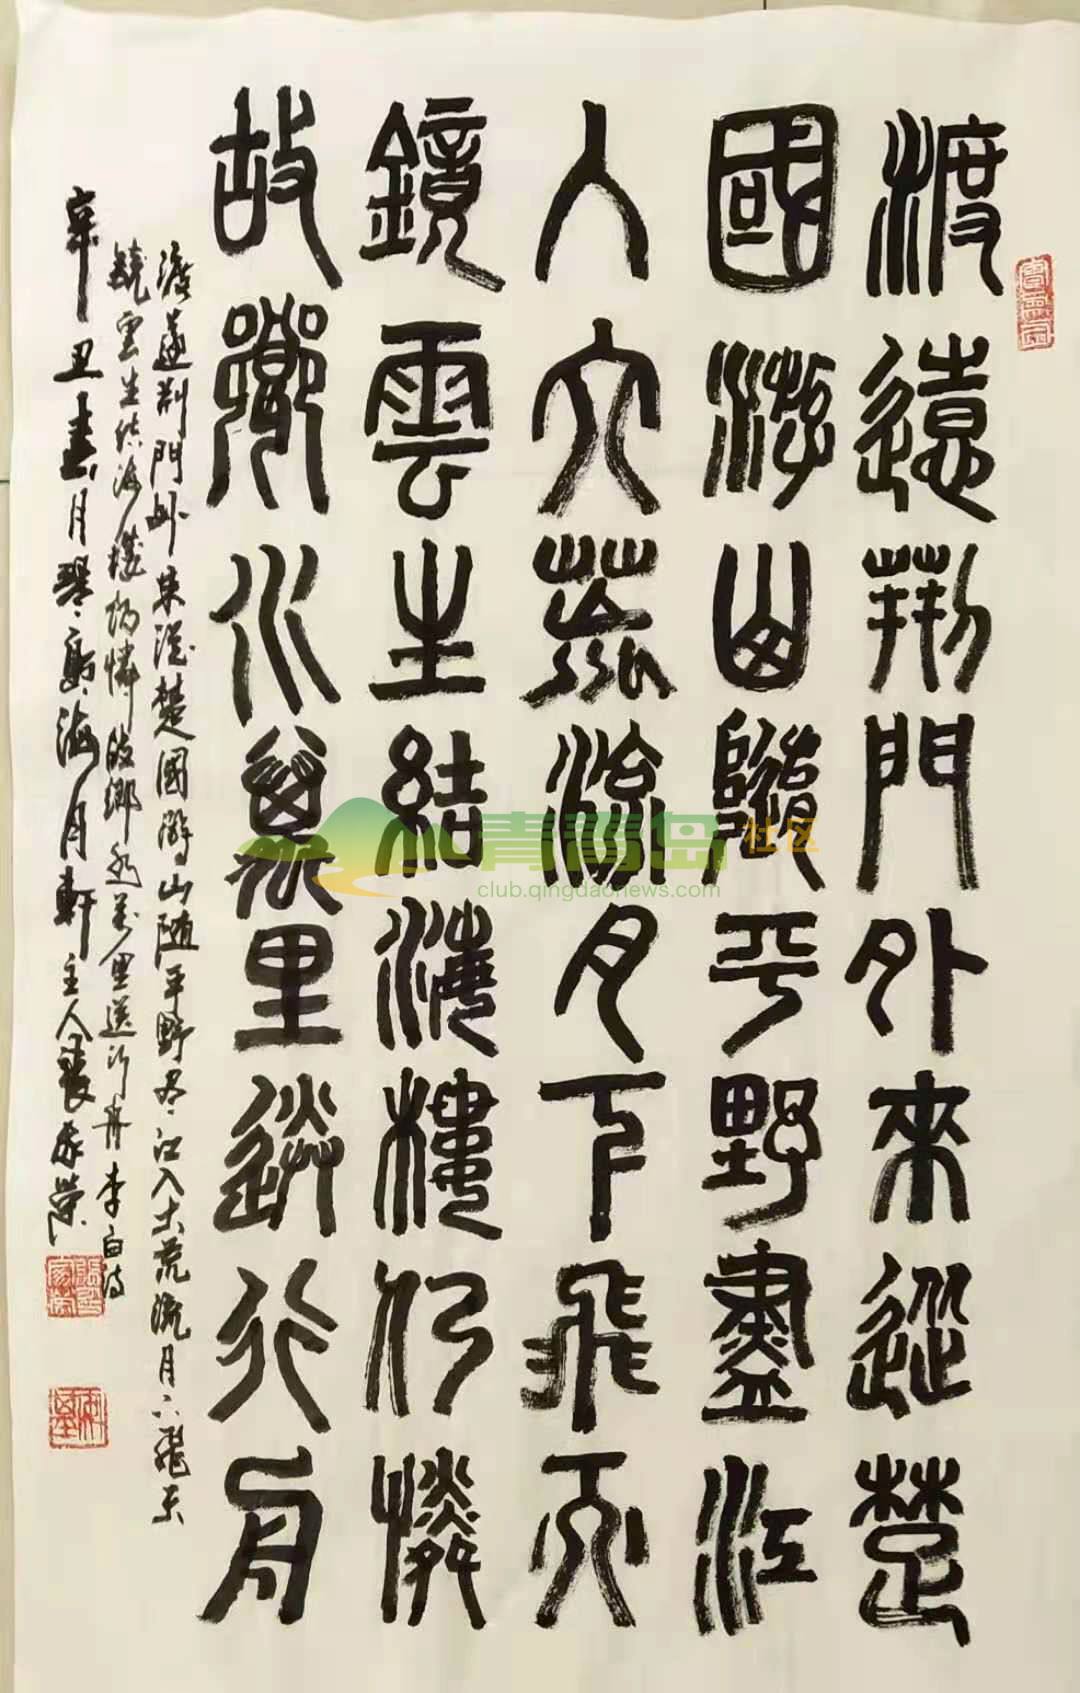 渡遠荊門外來從楚
國游山隨平野盡江
入大荒流月下飛天
鏡雲生結海樓仍憐
故鄉水萬里送行舟
渡遠荆門外来從楚國游山随平野尽江入大荒流月下飛天
鏡雲生结海楼仍憐故鄉水万里送行舟李白诗
辛丑春月琴島海月軒主人
青青岛社区
club.qingdaonews.com